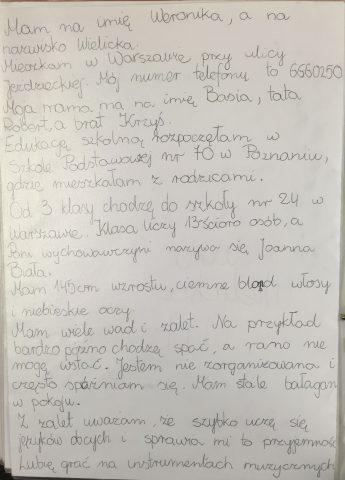 Mam na imię Weronika, a na
nazwisko Wielicka.
Mieszkam w Warszawie przy ulicy
Jeździeckiej. Mój numer telefonu to 6660250
Moja mama ma na imię Basia, tata
Robert, a brat Krzyś.
Edukację szkolną rozpoczęłam w
Szkole Podstawowej nr 70 w Poznaniu,
gdzie mieszkałam z rodzicami.
Od 3 klasy chodzę do szkoły nr 24 w
Warszawie. Klasa liczy 13ścioro osób, a
Pani wychowawczyni nazywa się Joanna
Biała.
Mam 145cm wzrostu, ciemne blond włosy
i niebieskie oczy.
Mam wiele wad i zalet. Na przykład
bardzo późno chodzę spać, a rano nie
mogę wstać. Jestem nie zorganizowana i
często spóźniam się. Mam stale bałagan
w pokoju.
Z zalet uważam, że szybko uczę się
języków obcych i sprawia mi to przyjemność
Lubię grać na instrumentach muzycznych